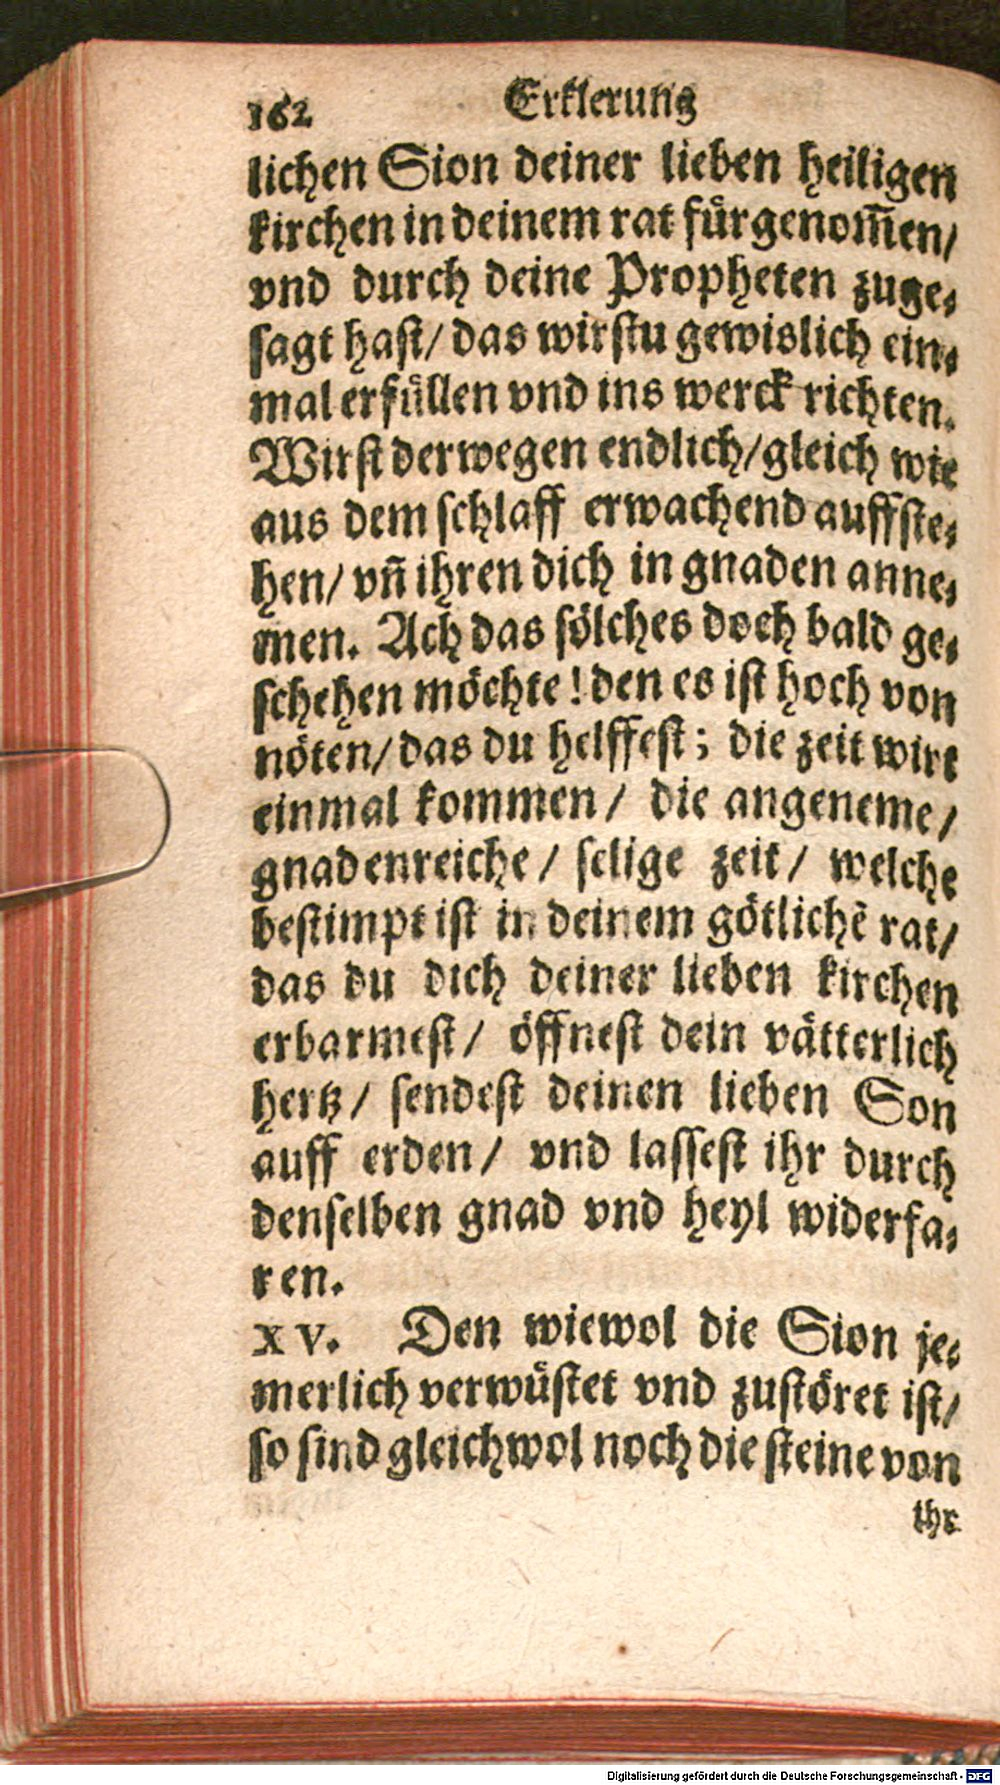 162 Erklerung
lichen Sion deiner lieben heiligen
kirchen in deinem rat fürgenom̃en/
vnd durch deine Propheten zuge⸗
sagt hast/ das wirstu gewislich ein⸗
mal erfüllen vnd ins werck richten.
Wirst derwegen endlich/gleich wie
aus dem schlaff erwachend auffste⸗
hen/ vñ ihren dich in gnaden anne⸗
men. Ach das sölches doch bald ge⸗
schehen möchte! den es ist hoch von
nöten/ das du helffest; die zeit wirt
einmal kommen/ die angeneme/
gnadenreiche/ selige zeit/ welche
bestimpt ist in deinem götlichẽ rat/
das du dich deiner lieben kirchen
erbarmest/ öffnest dein vätterlich
hertz/ sendest deinen lieben Son
auff erden/ vnd lassest ihr durch
denselben gnad vnd heyl widerfa⸗
ren.
XV. Den wiewol die Sion je⸗
merlich verwüstet vnd zustöret ist/
so sind gleichwol noch die steine von
ihr
Digitalisierung gefördert durch die Deutsche Forschungsgemeinschaft - DFG